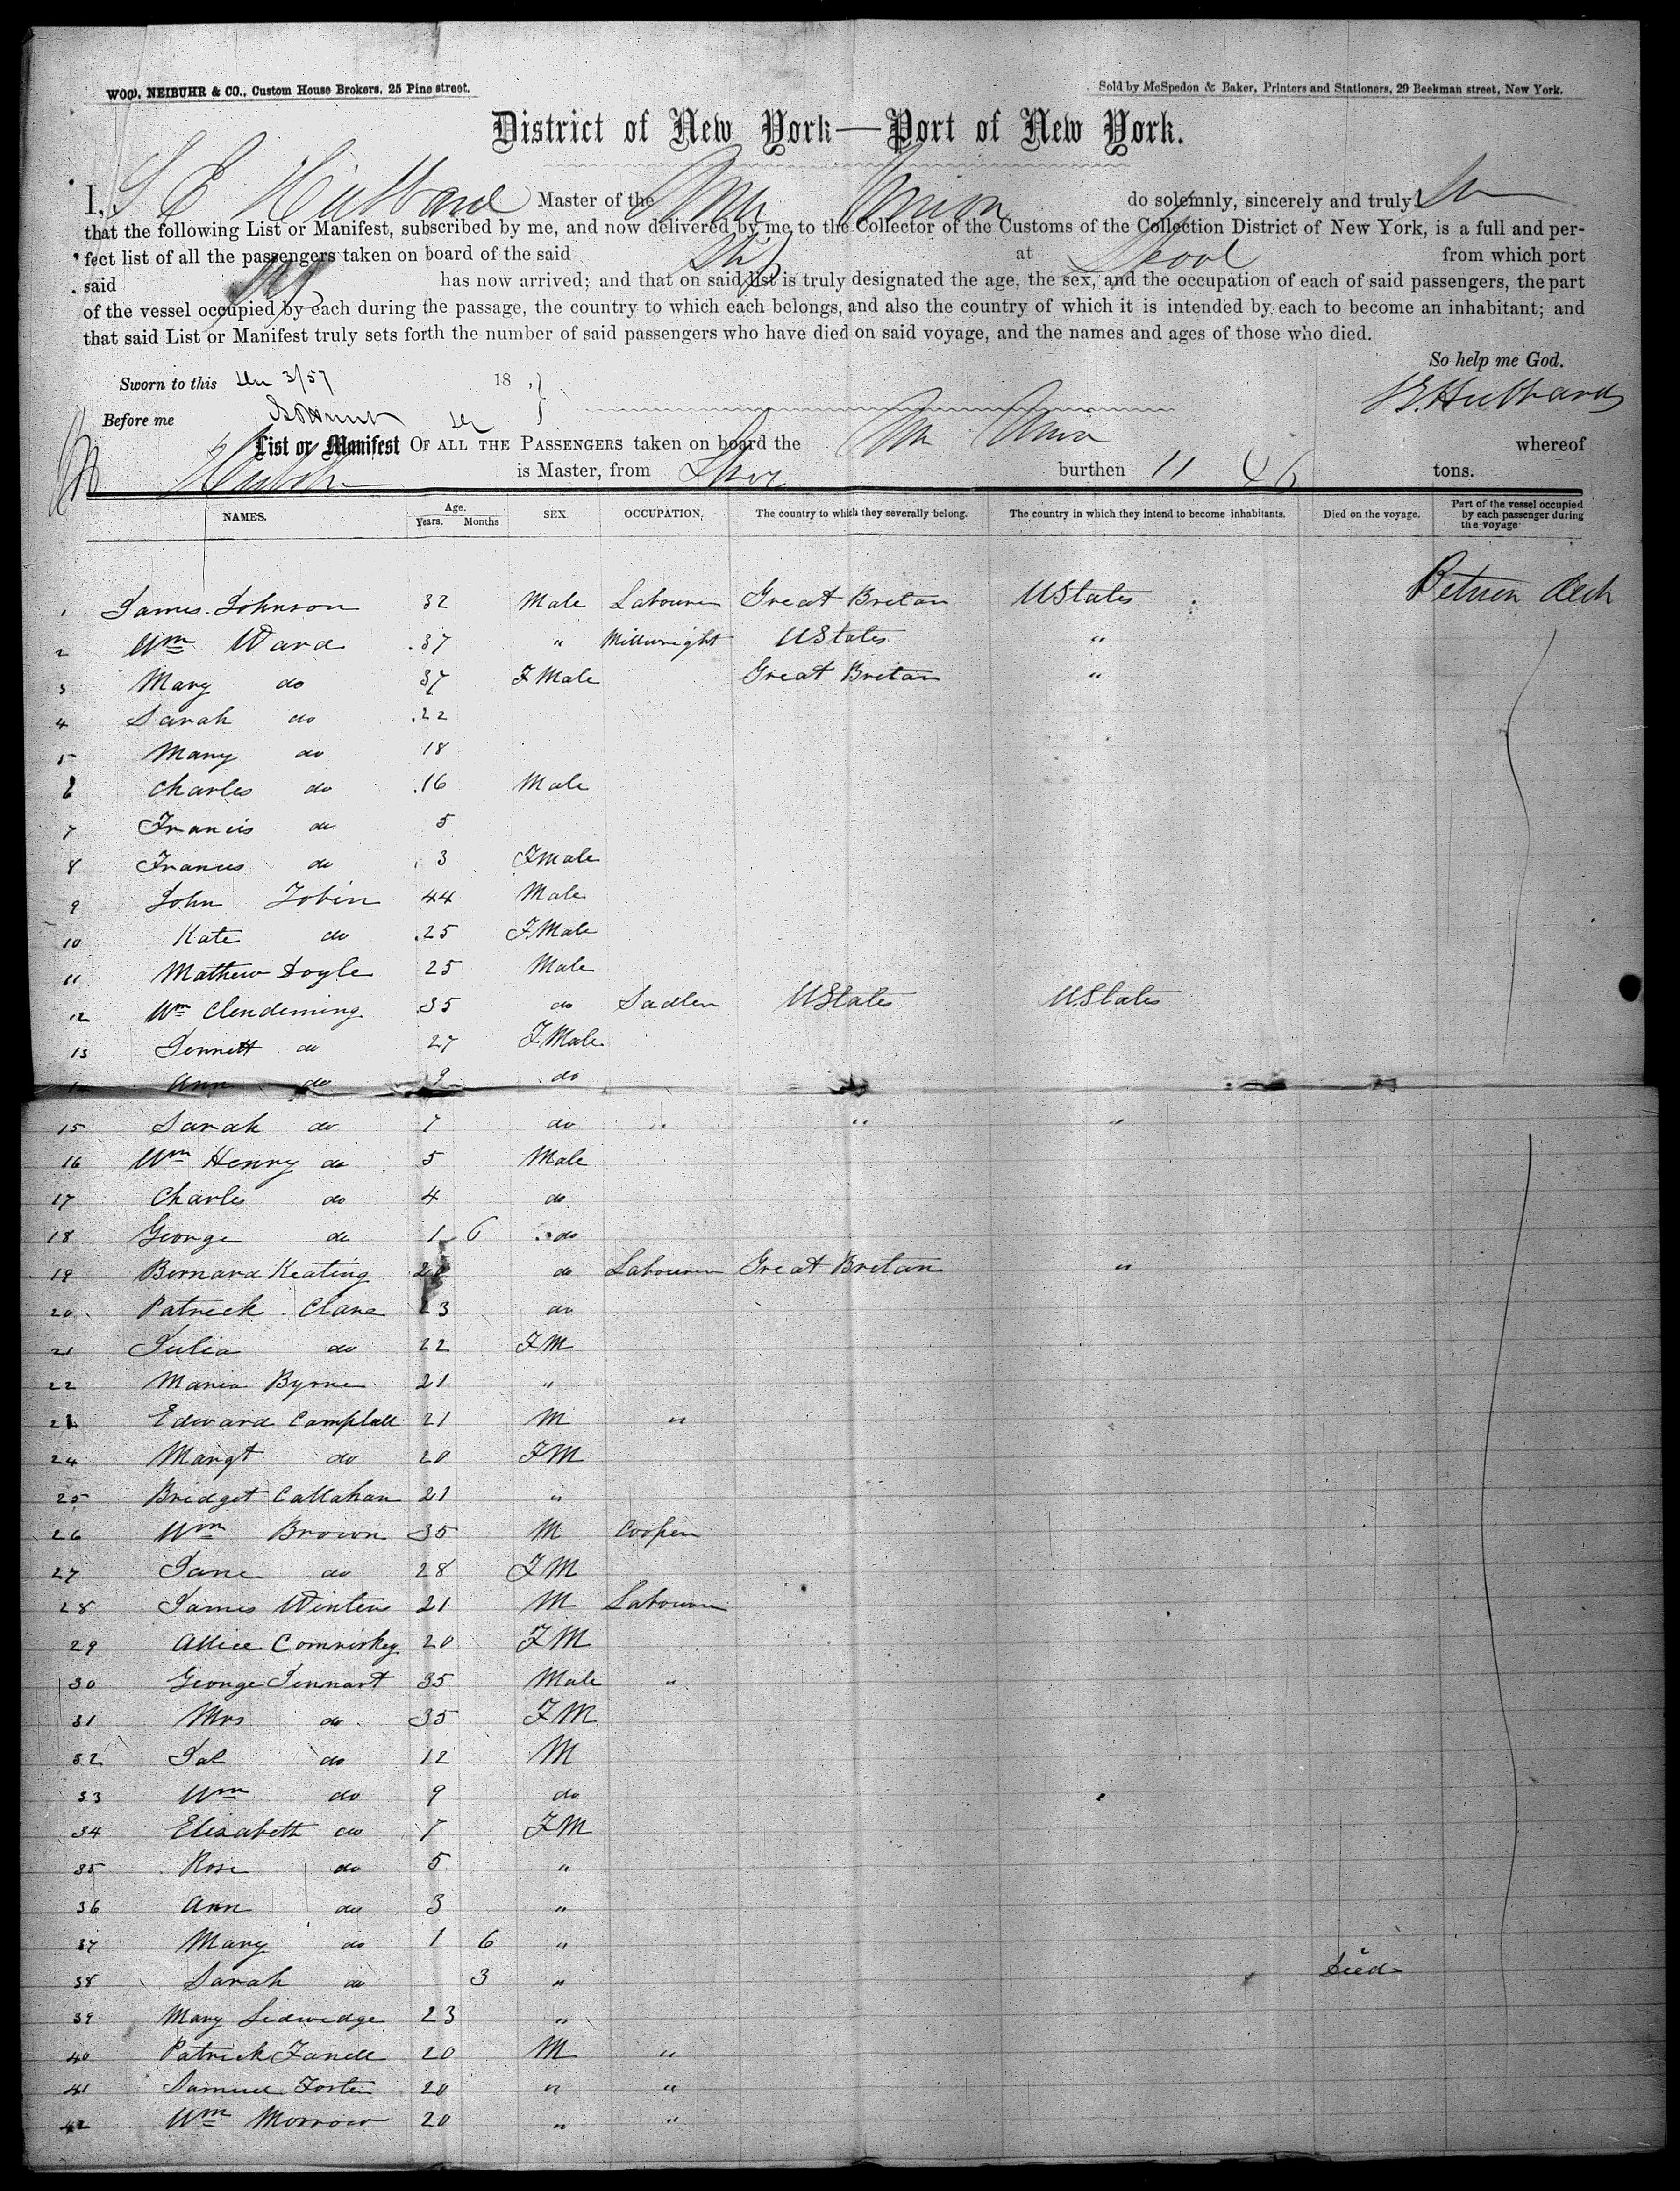 WOOD, NEIBUHR & CO., Custom House Brokers, 25 Pine street.
Sold by McSpedon & Baker, Printers and Stationers, 29 Beekman street, New York.
District of New York—Port of New York.
I, S E Hubbard Master of the do solemnly, sincerely and truly
that the following List or Manifest, subscribed by me, and now delivered by me to the Collector of the Customs of the Collection District of New York, is a full and per-
fect list of all the passengers taken on board of the said Ship at Lpool from which port
said Ship has now arrived; and that on said list is truly designated the age, the sex, and the occupation of each of said passengers, the part
of the vessel occupied by each during the passage, the country to which each belongs, and also the country of which it is intended by each to become an inhabitant; and
that said List or Manifest truly sets forth the number of said passengers who have died on said voyage, and the names and ages of those who died.
So help me God.
Sworn to this 3/57 18
S E Hubbard
Before me
List or Manifest OF ALL THE PASSENGERS taken on board the whereof
is Master, from burthen 11 46 tons.
NAMES. Age. Years. Months SEX. OCCUPATION. The country to which they severally belong. The country in which they intend to become inhabitants. Died on the voyage. Part of the vessel occupied by each passenger during the voyage
1 James Johnson 32 Male Labourer Great Bretan UStates Betwen Deck
2 Wm Ward 37 " Millwright UStates "
3 Mary do 37 FMale Great Bretan "
4 Sarah do 22
5 Mary do 18
6 Charles do 16 Male
7 Francis do 5
8 Frances do 3 FMale
9 John Tobin 44 Male
10 Kate do 25 FMale
11 Mathew Doyle 25 Male
12 Wm Clendeming 35 do Sadler UStates UStates
13 Jennett do 27 FMale
14 Ann do 9 do
15 Sarah do 7 do " " "
16 Wm Henry do 5 Male
17 Charles do 4 do
18 George do 1 6 do
19 Bernard Keating do Labourer Great Bretan "
20 Patrick Clare 23 do
21 Julia do 22 FM
22 Maria Byrne 21 "
23 Edward Campbell 21 M "
24 Margt do 20 FM
25 Bridget Callahan 21 "
26 Wm Brown 35 M Cooper
27 Jane do 28 FM
28 James Winters 21 M Labourer
29 Allice Comriskey 20 FM
30 George Tennart 35 Male "
31 Mrs do 35 FM
32 do 12 M
33 Wm do 9 do
34 Elizabeth do 7 FM
35 Rose do 5 "
36 Ann do 3 "
37 Mary do 1 6 "
38 Sarah do 3 " Died
39 Mary Ledwedge 23 "
40 Patrick Farrell 20 M "
41 Samuel Foster 20 " "
42 Wm Morrow 20 " "